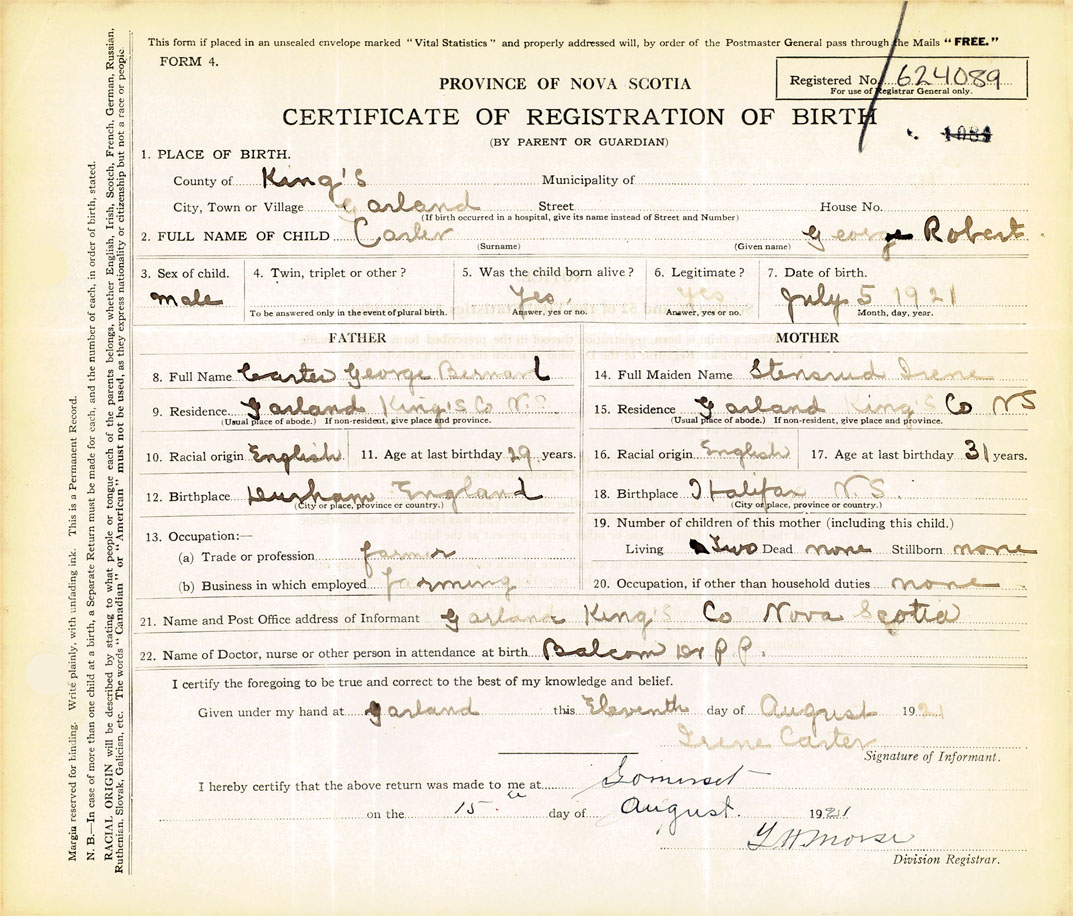 This form if placed in an unsealed envelope marked "Vital Statistics" and properly addressed will, by order of the Postmaster General pass through the Mails "FREE."
FORM 4.
Registered No. 624089
For use of Registrar General only.
PROVINCE OF NOVA SCOTIA
CERTIFICATE OF REGISTRATION OF BIRTH
(BY PARENT OR GUARDIAN)
1. PLACE OF BIRTH.
County of King's Municipality of
City, Town or Village Garland Street House No.
(If birth occurred in a hospital, give its name instead of Street and Number)
2. FULL NAME OF CHILD Carter George Robert
(Surname) (Given name)
3. Sex of child. 4. Twin, triplet or other? 5. Was the child born alive? 6. Legitimate? 7. Date of birth.
male Yes. Yes July 5 1921
To be answered only in the event of plural birth. Answer, yes or no. Answer, yes or no. Month, day, year.
FATHER MOTHER
8. Full Name Carter George Bernard 14. Full Maiden Name Stensrud Irene
9. Residence. Garland King's Co N.S 15. Residence Garland King's Co NS
(Usual place of abode.) If non-resident, give place and province. (Usual place of abode.) If non-resident, give place and province.
10. Racial origin English 11. Age at last birthday 29 years. 16. Racial origin English 17. Age at last birthday 31 years.
12. Birthplace Durham England 18. Birthplace Halifax N.S.
(City or place, province or country.) (City or place, province or country.)
13. Occupation:— 19. Number of children of this mother (including this child.)
(a) Trade or profession farmer Living Two Dead none Stillborn none
(b) Business in which employed farming 20. Occupation, if other than household duties none
21. Name and Post Office address of Informant Garland King's Co Nova Scotia
22. Name of Doctor, nurse or other person in attendance at birth Balcom Dr P P.
I certify the foregoing to be true and correct to the best of my knowledge and belief.
Given under my hand at Garland this Eleventh day of August 1921
Irene Carter
Signature of Informant.
I hereby certify that the above return was made to me at Somerset
on the 15 day of August. 1921
Division Registrar.
Margin reserved for binding. Write plainly, with unfading ink. This is a Permanent Record.
N. B.—In case of more than one child at a birth, a Separate Return must be made for each, and the number of each, in order of birth, stated.
RACIAL ORIGIN will be described by stating to what people or tongue each of the parents belongs, whether English, Irish, Scotch, French, German, Russian,
Ruthenian, Slovak, Galician, etc. The words "Canadian" or "American" must not be used, as they express nationality or citizenship but not a race or people.